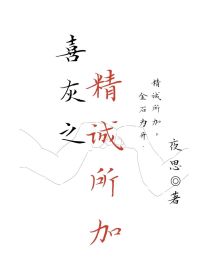 喜灰之
精诚所加
精诚所加，
金石为开.
夜思◎著